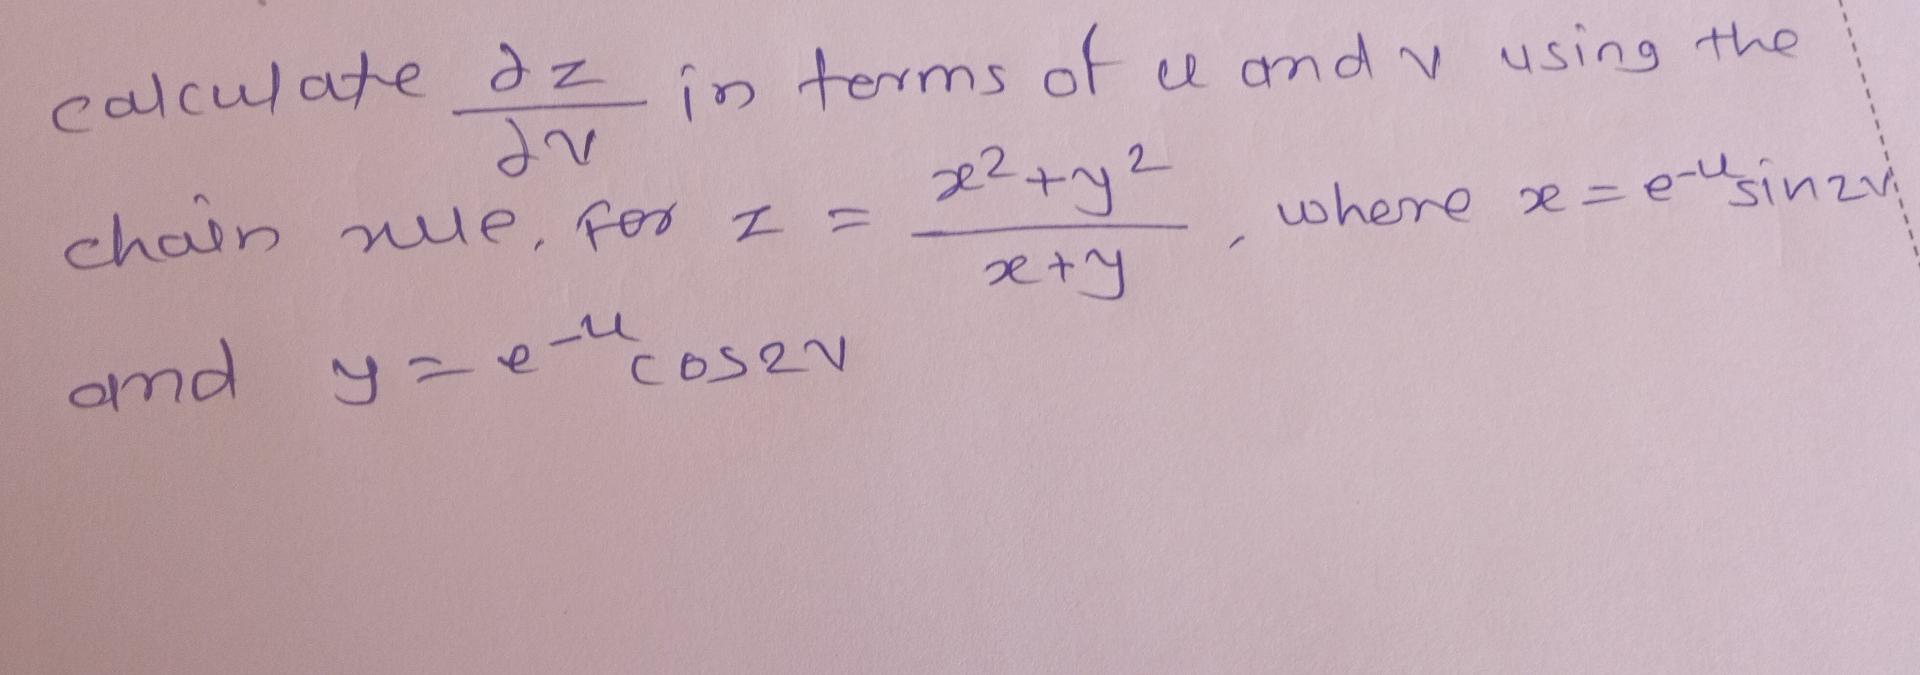 calculate ∂z/∂v in terms of u and v using the
chain rule, for z = x²+y²/x+y, where x = e^-u sin2v
and y = e^-u cos2v